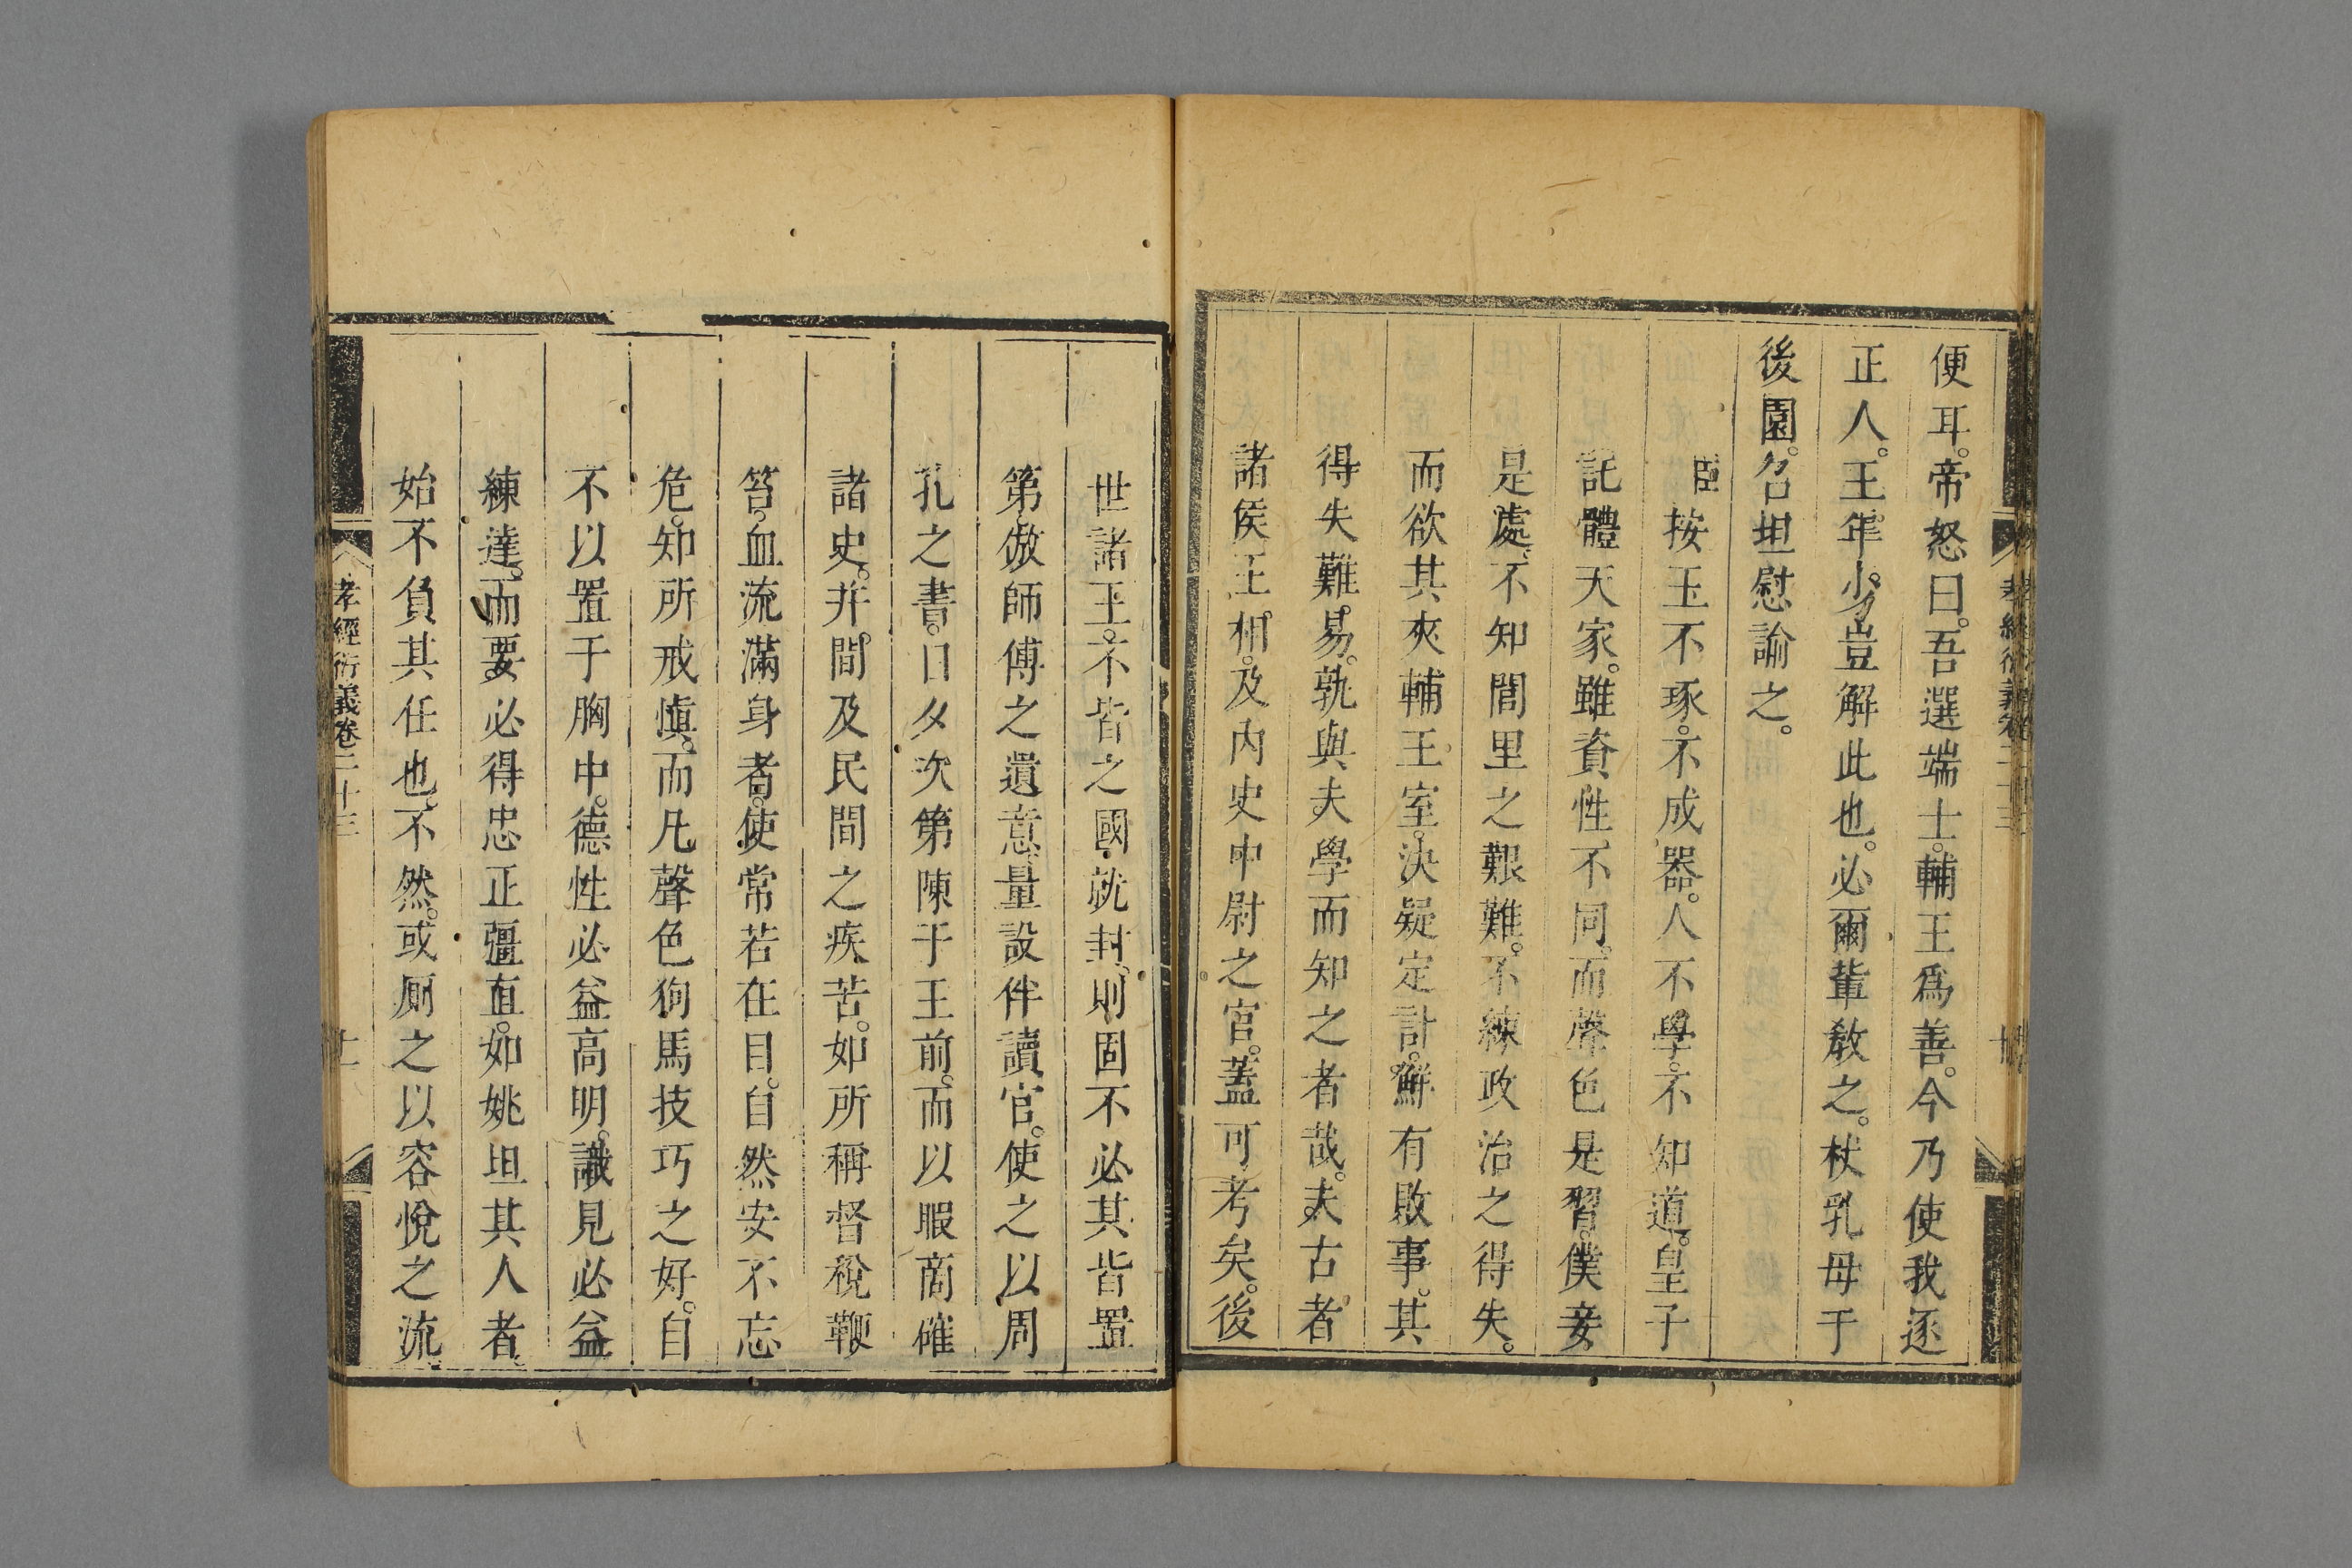 便耳。帝怒曰。吾選端士。輔王爲善。今乃使我逐
正人。王年少。豈解此也。必爾輩教之。杖乳母于
後園。召坦慰諭之。
臣按玉不琢。不成器。人不學。不知道。皇子
託體天家。雖資性不同。而聲色是習。僕妾
是處。不知閭里之艱難。不練政治之得失。
而欲其夾輔王室。決疑定計。鮮有敗事。其
得失難易。孰與夫學而知之者哉。夫古者
諸侯王相。及內史中尉之官。蓋可考矣。後
世諸王。不皆之國就封。則固不必其皆置
第倣師傅之遺意。量設伴讀官。使之以周
孔之書。日夕次第陳于王前。而以暇商確
諸史。并間及民間之疾苦。如所稱督稅鞭
笞。血流滿身者。使常若在目。自然安不忘
危。知所戒愼。而凡聲色狗馬技巧之好。自
不以置于胸中。德性必益高明。識見必益
練達。而要必得忠正彊直。如姚坦其人者。
始不負其任也。不然。或厠之以容悅之流。
孝經衍義卷二十三